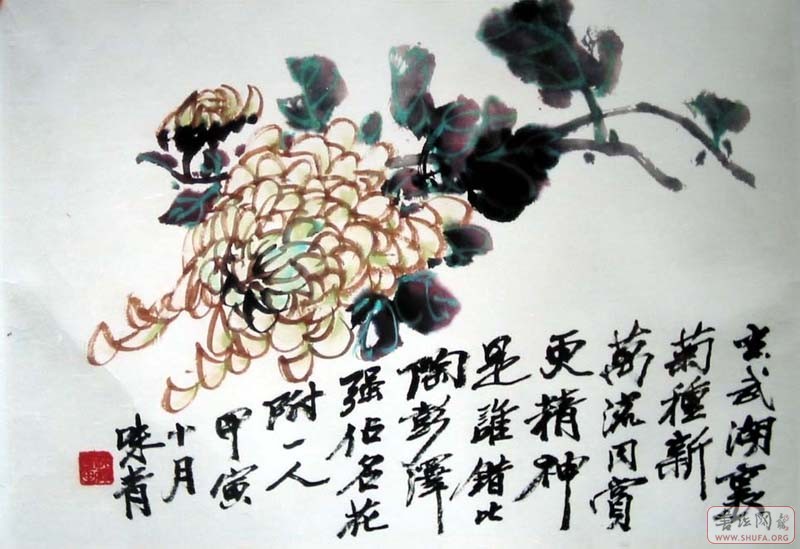 玄武湖裏
菊種新
万流同賞
更精神
是誰錯比
陶彭澤
强佔名花
附一人
甲寅
小月
味青
書法网報
WWW.SHUFA.ORG